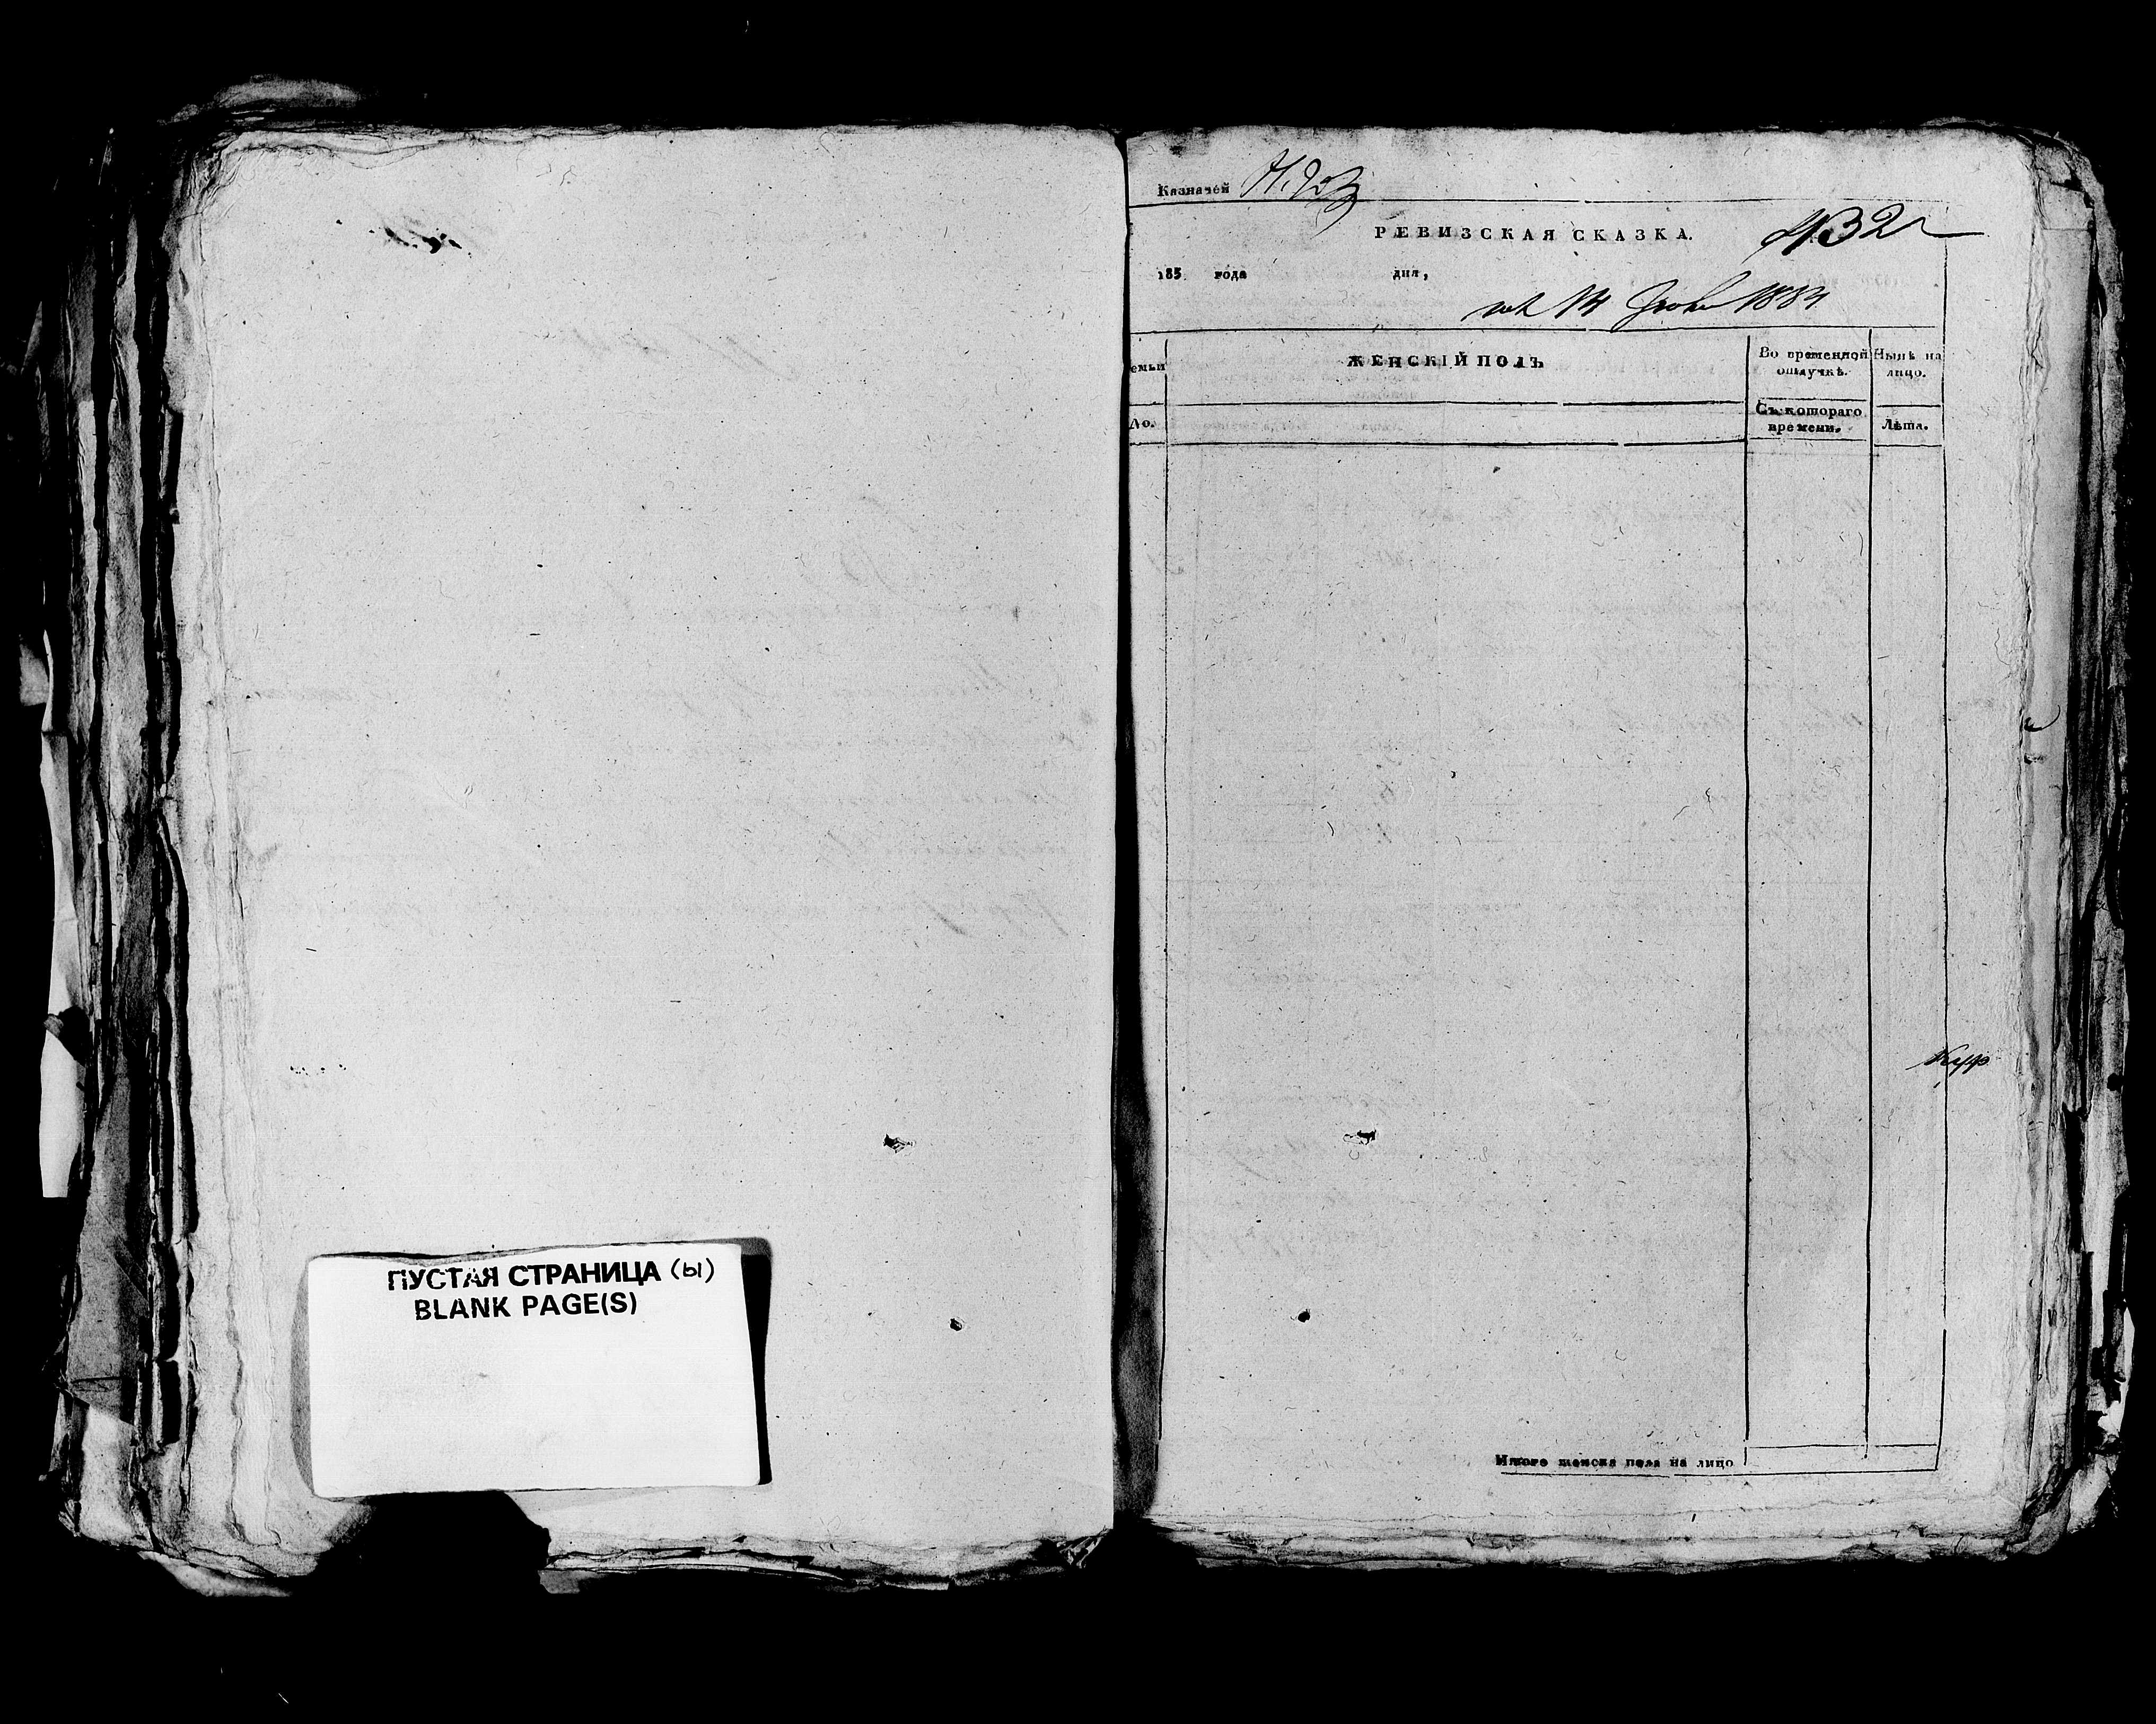 ПУСТАЯ СТРАНИЦА (ы)
BLANK PAGE(S)
Казначей
РЕВИЗСКАЯ СКАЗКА.
432
185 года дня,
14 1884
емьи
ЖЕНСКІЙ ПОЛЪ
Во временной отлучкѣ.
Нынѣ на лицо.
Ло.
Съ котораго времени.
Лѣта.
Итого женска пола на лицо